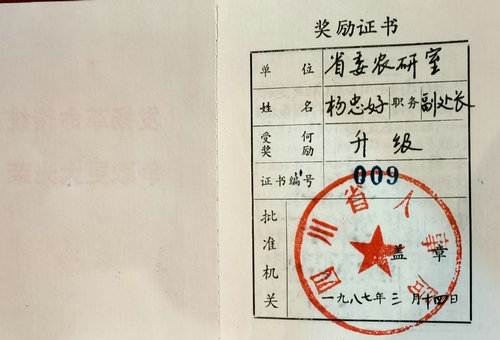 奖励证书
单位 省委农研室
姓名 杨忠好 职务 副处长
受何奖励 升级
证书编号 009
批准机关 四川省人事局
盖章
一九八七年三月十四日